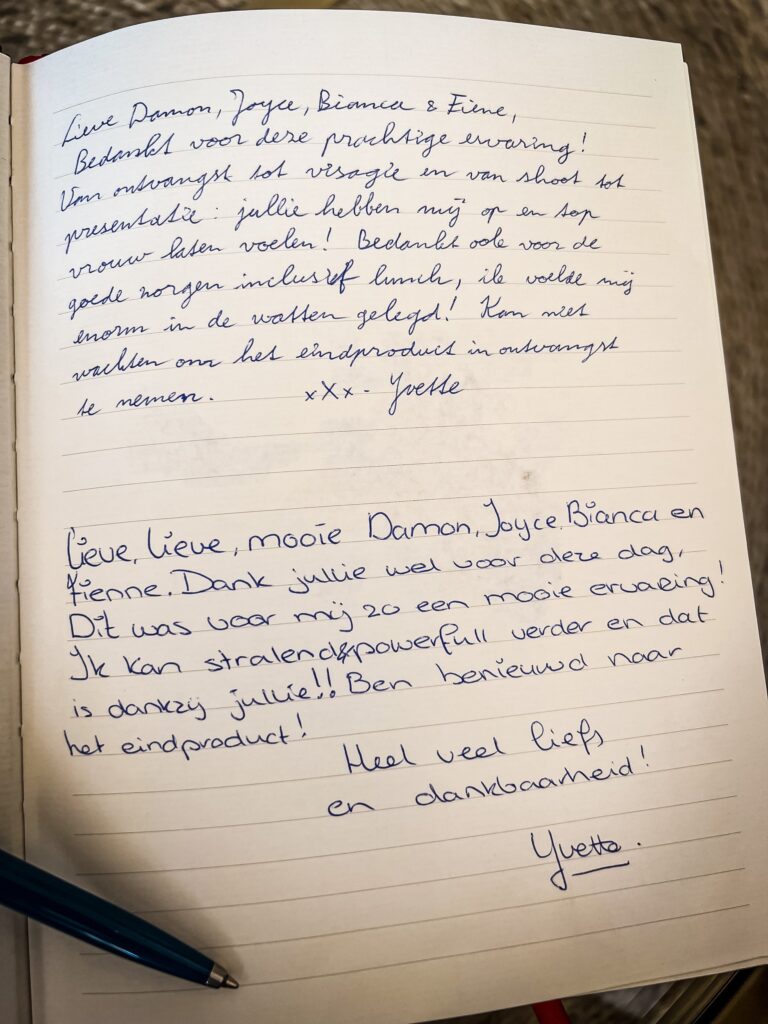 Lieve Damon, Joyce, Bianca & Fiene,
Bedankt voor deze prachtige ervaring!
Van ontvangst tot visagie en van shoot tot
presentatie: jullie hebben mij op en top
vrouw laten voelen! Bedankt ook voor de
goede zorgen inclusief lunch, ik voelde mij
enorm in de watten gelegd! Kan niet
wachten om het eindproduct in ontvangst
te nemen. xXx - Yvette
Lieve, lieve, mooie Damon, Joyce, Bianca en
Fienne. Dank jullie wel voor deze dag,
Dit was voor mij zo een mooie ervaring!
Ik kan stralend&powerfull verder en dat
is dankzij jullie!! Ben benieuwd naar
het eindproduct!
Heel veel liefs
en dankbaarheid!
Yvette.